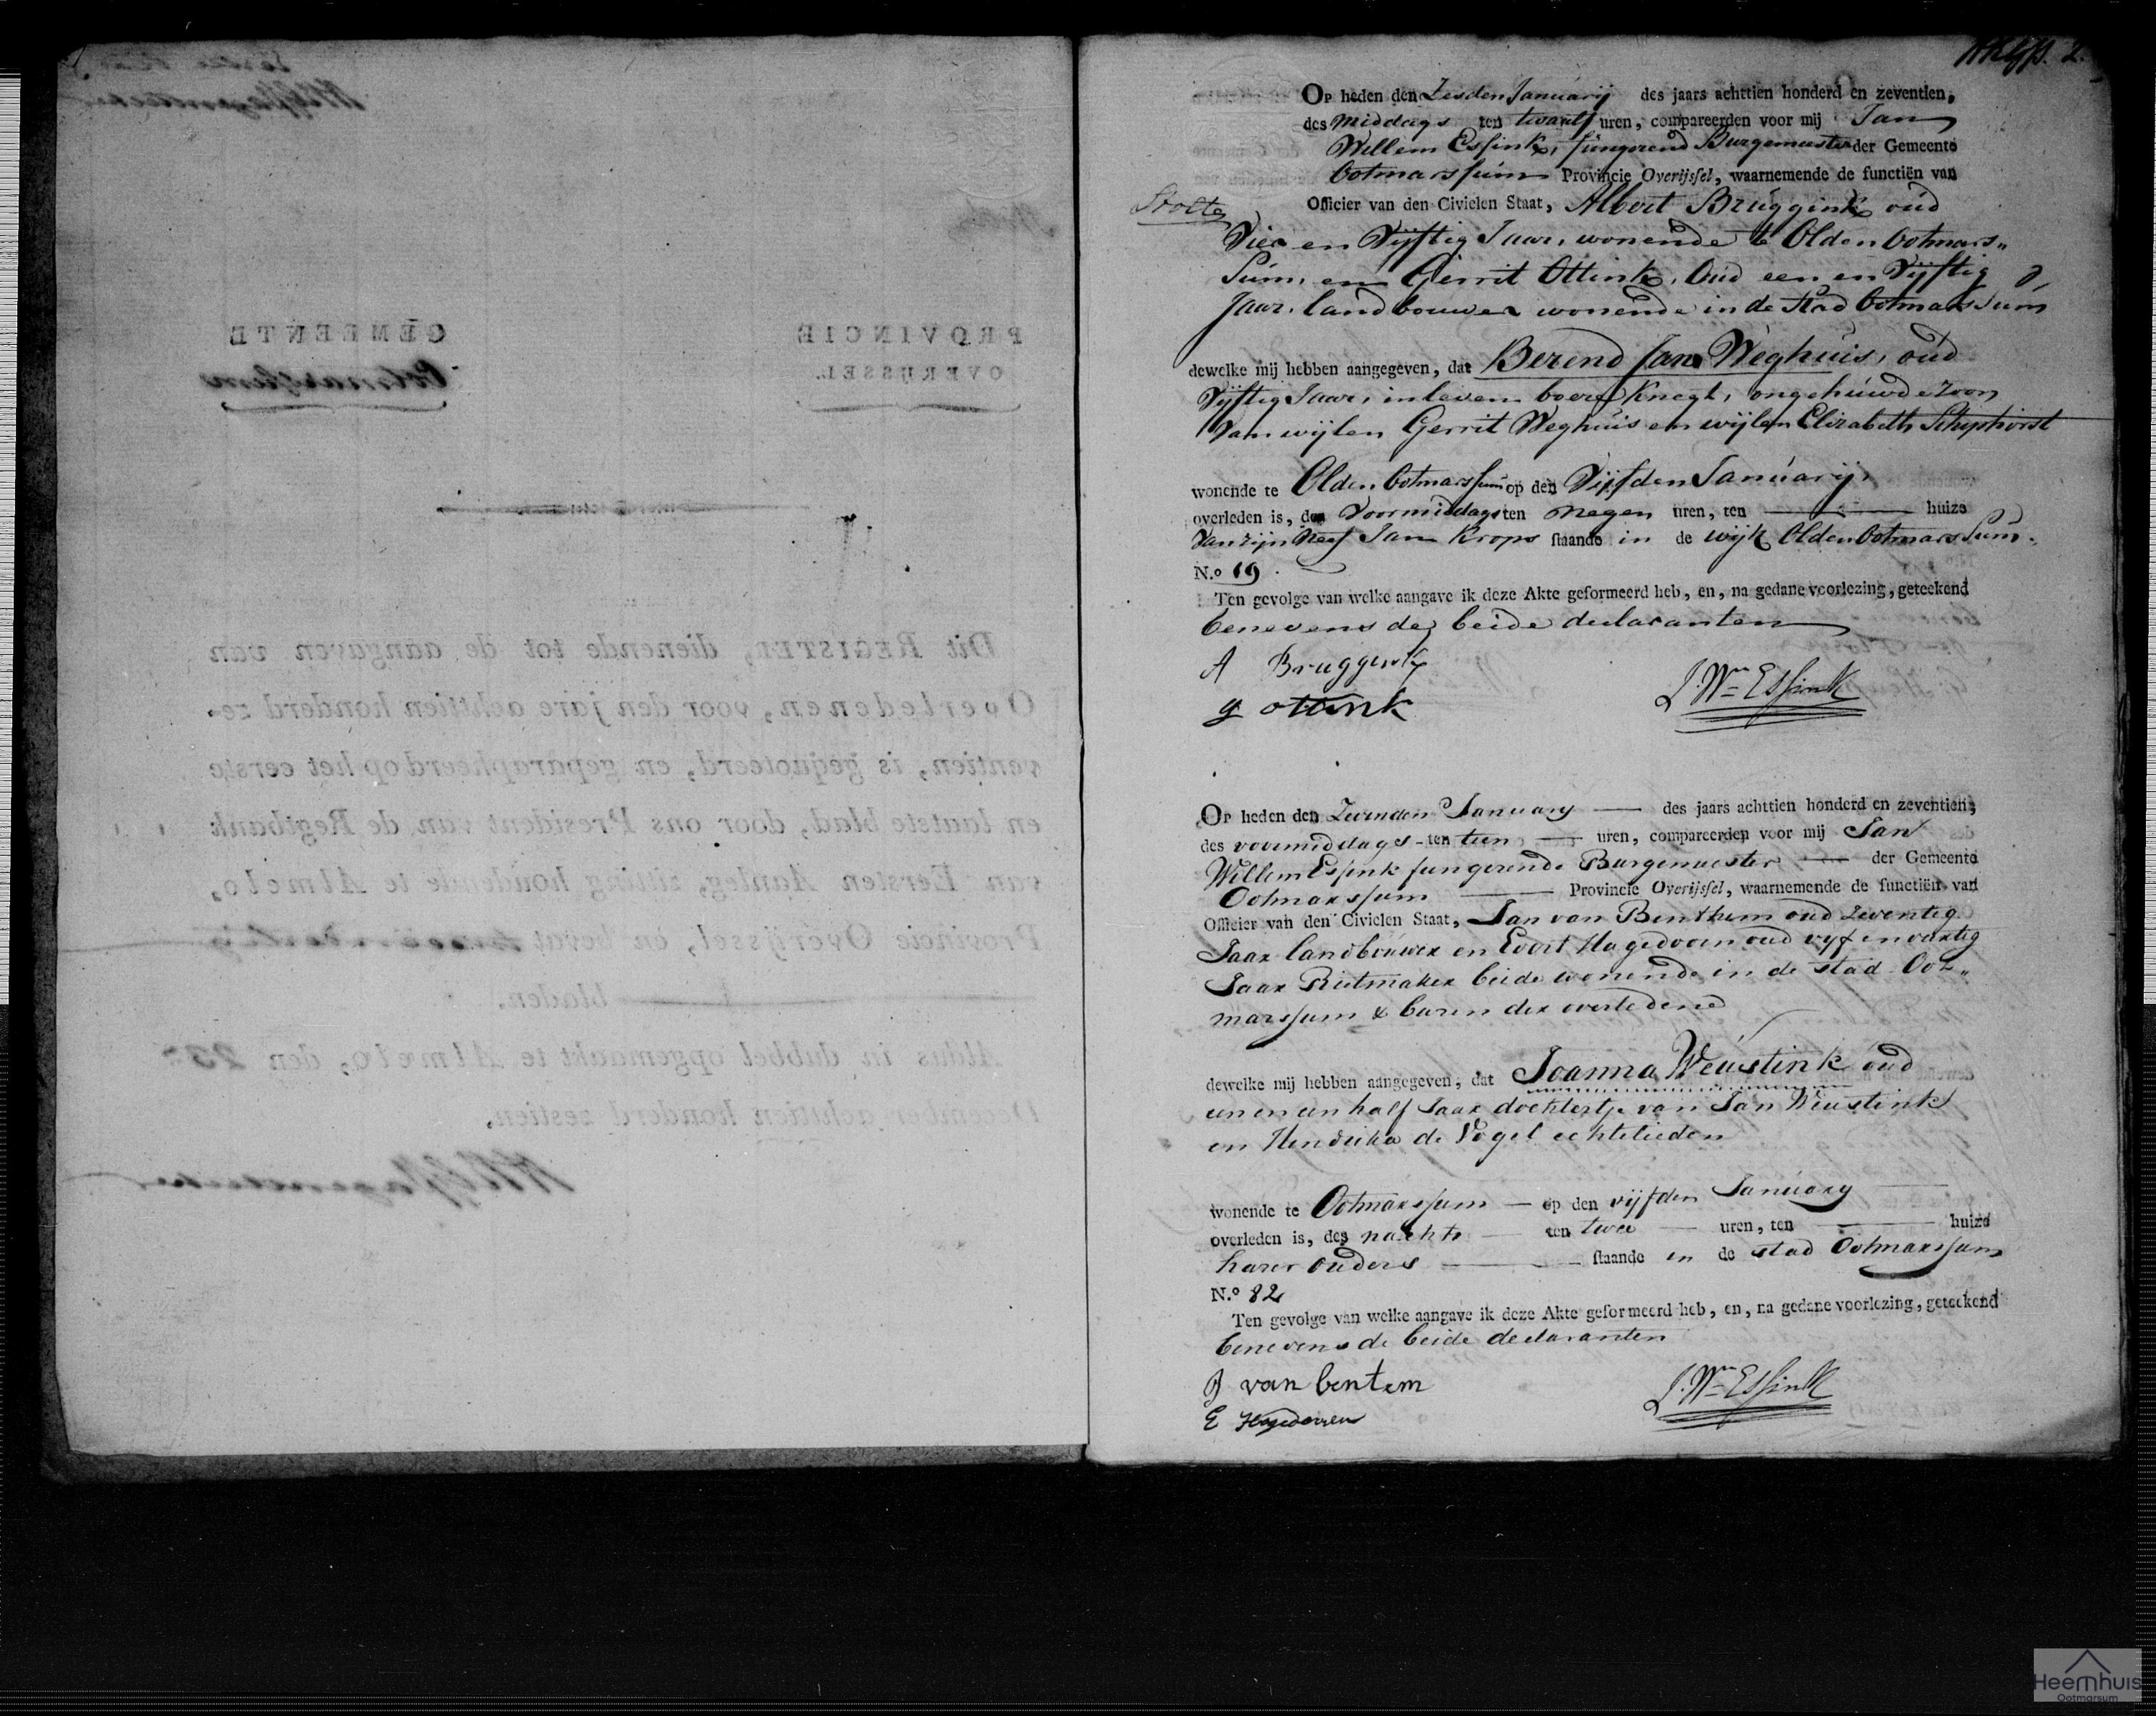 GEMEENTE
Ootmarshum
PROVINCIE
OVERIJSSEL.
Dit REGISTER, dienende tot de aangaven van
Overledenen, voor den jare achttien honderd ze-
ventien, is gequoteerd, en geparapheerd op het eerste
en laatste blad, door ons President van de Regtbank
van Eersten Aanleg, zitting houdende te Almelo,
Provincie Overijssel, en bevat
bladen.
Aldus in dubbel opgemaakt te Almelo, den 23
December achttien honderd zestien.
2.
Op heden den Zesden Januarij des jaars achttien honderd en zeventien,
des middags ten twaalf uren, compareerden voor mij Jan
Willem Essink, fungerend Burgemeester der Gemeente
Ootmarssum Provincie Overijssel, waarnemende de functiën van
Stolte
Officier van den Civielen Staat, Albert Bruggink oud
Vier en Vijftig Jaar, wonende te Olden Ootmars„
Sum, en Gerrit Ottink, Oud een en Vijftig
Jaar, landbouwer wonende in de Stad Ootmarssum
dewelke mij hebben aangegeven, dat Berend Jan Weghuis, oud
Vijftig Jaar, in leven boere Knegt, ongehuwde zoon
Van wijlen Gerrit Weghuis en wijlen Elizabeth Schiphorst
wonende te Olden Ootmarssum op den Vijfden Januarij,
overleden is, des Voormiddags ten negen uren, ten huize
Van zijn Neef Jan Krops staande in de wijk Olden Ootmars Sum.
N.o 19
Ten gevolge van welke aangave ik deze Akte geformeerd heb, en, na gedane voorlezing, geteekend
benevens de beide declaranten
A Bruggink
g ottink
J. Wm Essink
Op heden den Zevenden January des jaars achttien honderd en zeventien,
des voormiddags ten tien uren, compareerden voor mij Jan
Willem Essink fungerende Burgemeester der Gemeente
Ootmarssum Provincie Overijssel, waarnemende de functiën van
Officier van den Civielen Staat, Jan van Benthem oud zeventig
Jaar landbouwer en Evert Hagedoorn oud vyf en veertig
Jaar Rietmaker beide wonende in de stad Oot„
marssum & buren der overledene
dewelke mij hebben aangegeven, dat Joanna Weustink oud
een en een half Jaar dochtertje van Jan Weustink
en Hendrika de Vogel echtelieden
wonende te Ootmarssum op den vijfden January
overleden is, des nachts ten twee uren, ten huize
harer ouders staande in de stad Ootmarssum
N.o 82
Ten gevolge van welke aangave ik deze Akte geformeerd heb, en, na gedane voorlezing, geteekend
benevens de beide declaranten
J van bentem
E Hagedoren
J. Wm Essink
Heemhuis
Ootmarsum